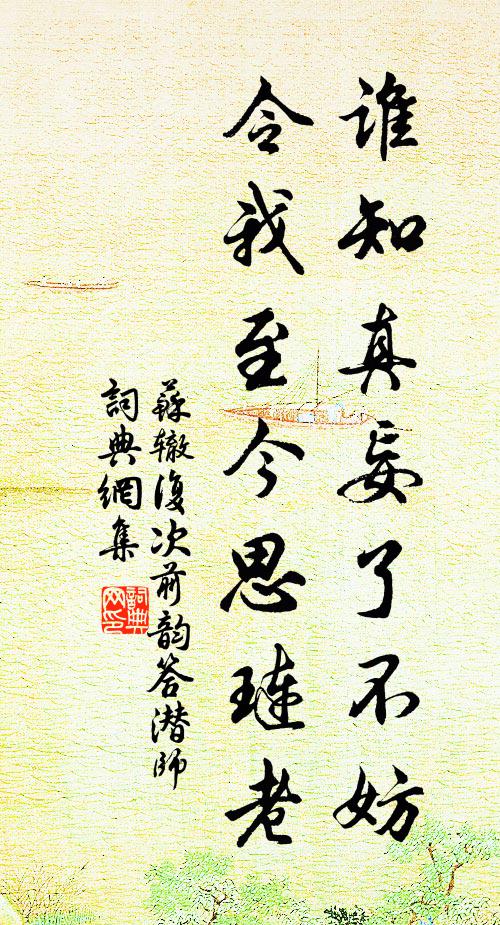 谁知真妄了不妨
令我至今思琏老
蘇辙復次前韵答潜师
詞典網集
詞典网印